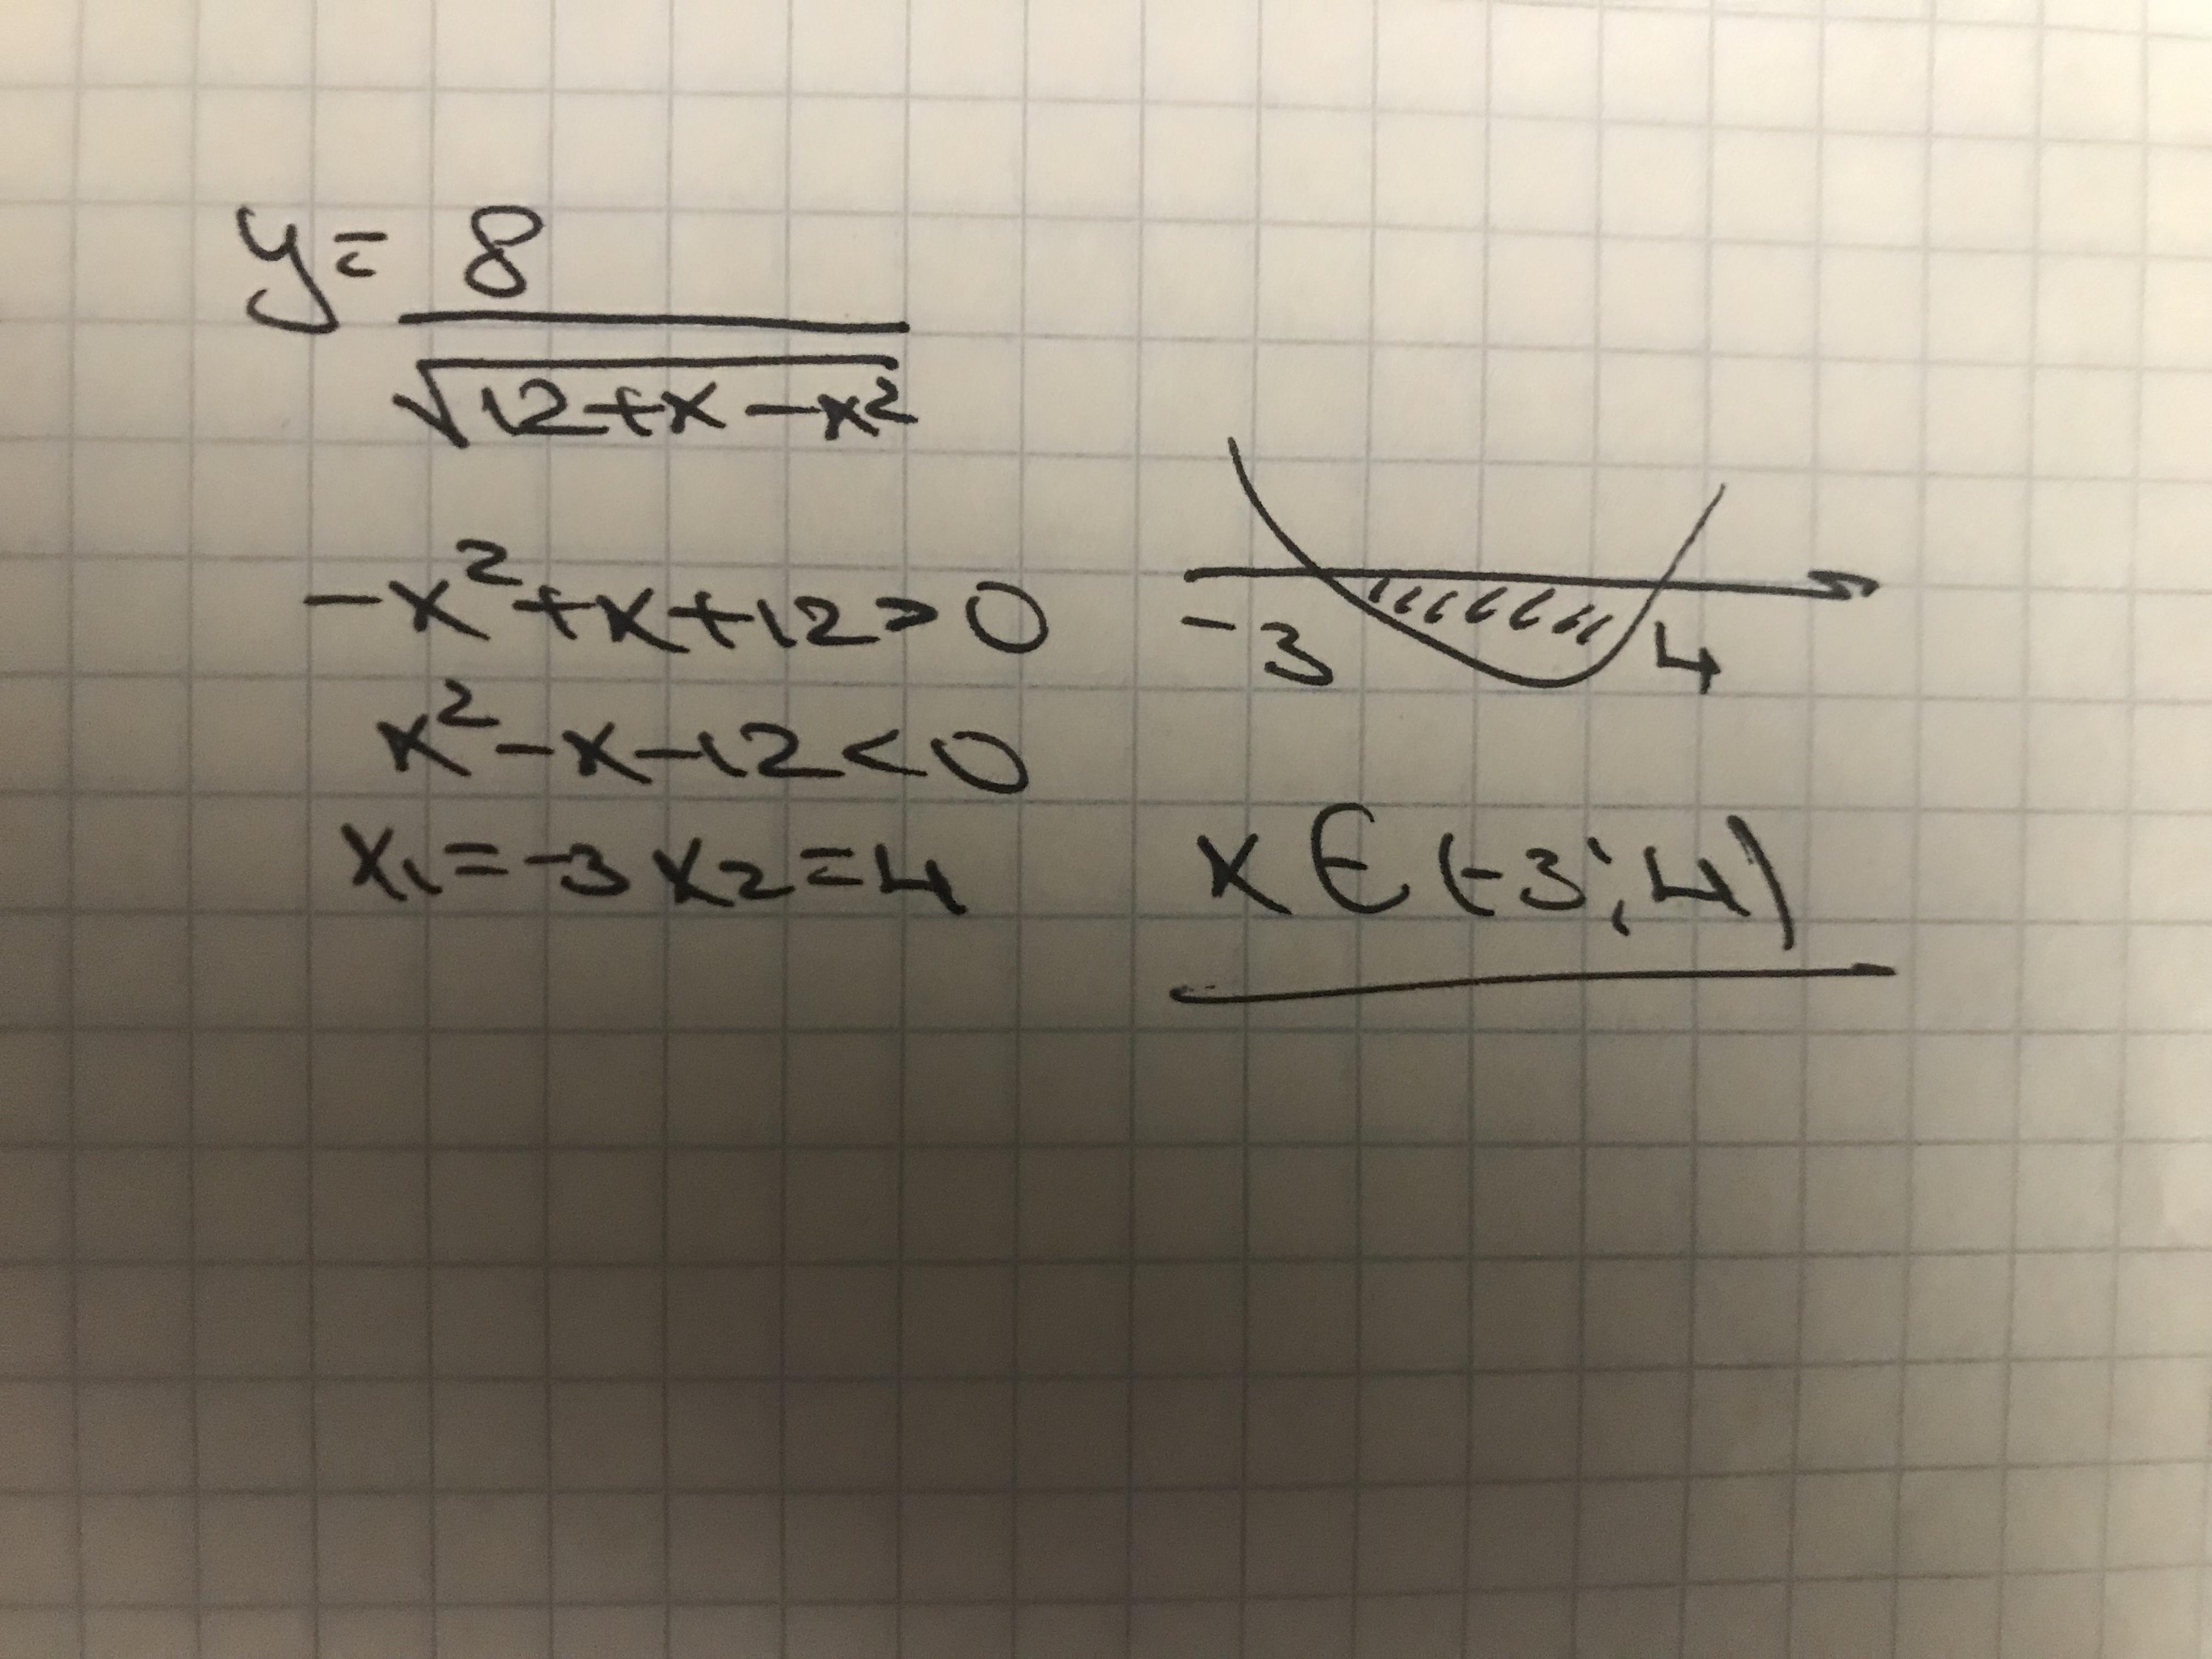 y = 8
√12+x-x²
-x²+x+12>0
x²-x-12<0
x₁=-3 x₂=4
-3 4
x∈(-3;4)